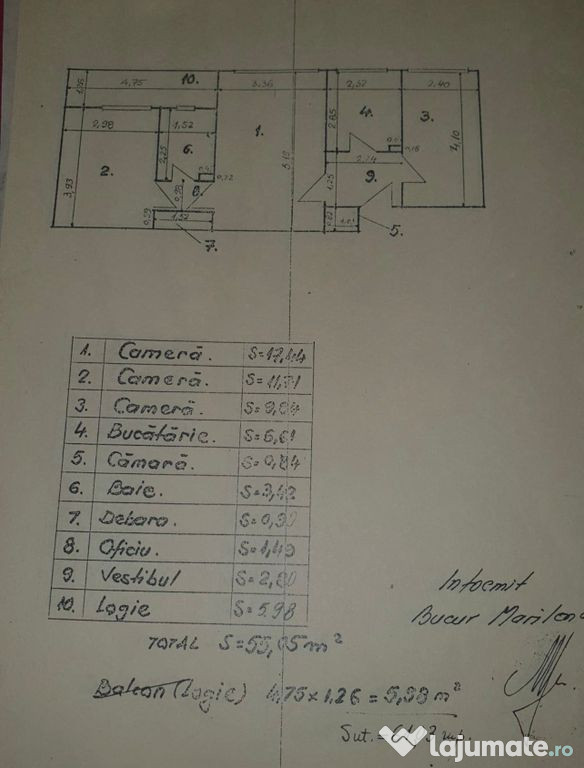 4,75 10. 3,36 2,57 2,40
2,98 1,52 2,85 4. 3.
6. 1. 4,10
2,25
2. 2,74
3,93 0,98 8 0,72 1,25 9.
0,59 1,52
7. 5.
1. Cameră. S=17,44
2. Cameră. S=11,71
3. Cameră. S=9,84
4. Bucătărie. S=6,61
5. Cămară. S=0,84
6. Baie. S=3,42
7. Debara. S=0,90
8. Oficiu. S=1,49
9. Vestibul S=2,80
10. Logie S=5,98
TOTAL S=55,05 m²
Balcon (Logie) 4,75 x 1,26 = 5,98 m²
Sut. =
Intocmit
Bucur Marilena
lajumate.ro